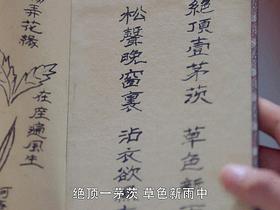 絕頂壹茅茨 草色新
松聲晚窗裏 沾衣欲
弄花緣
绝顶一茅茨 草色新雨中